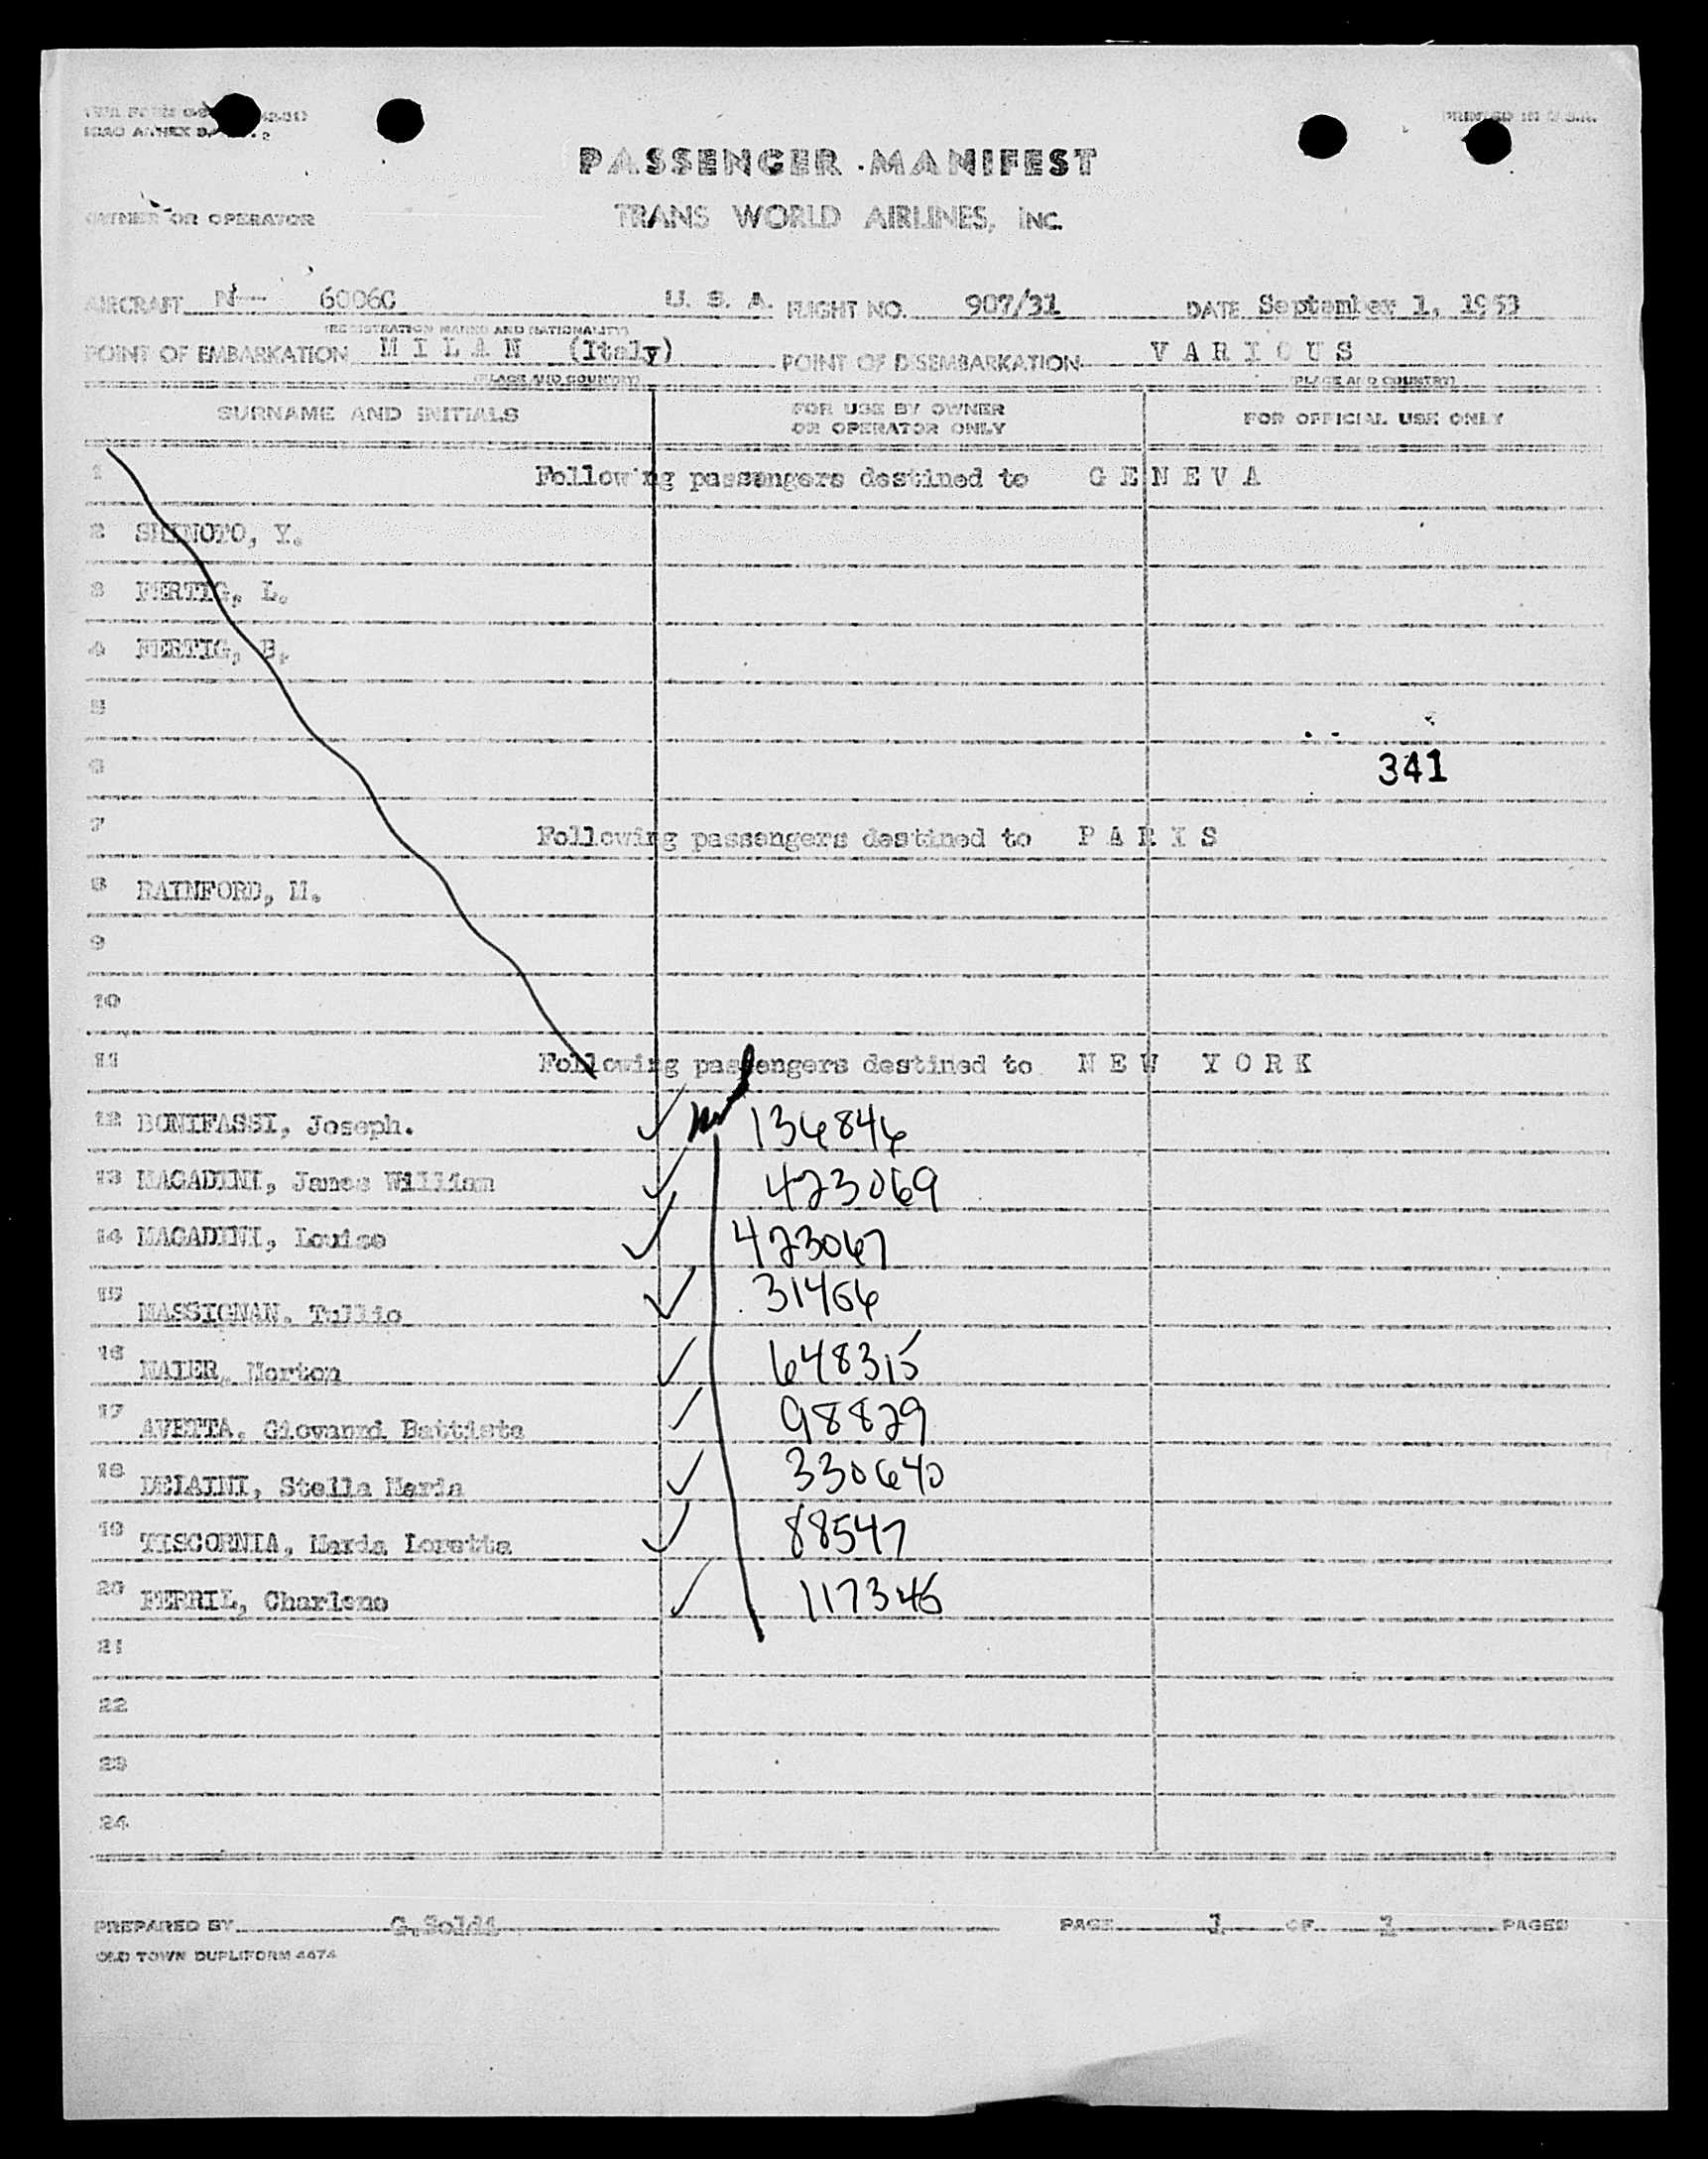 PRINTED IN U.S.A.
ICAO ANNEX 9,
PASSENGER MANIFEST
OWNER OR OPERATOR TRANS WORLD AIRLINES, INC.
AIRCRAFT N- 6006C U. S. A. FLIGHT NO. 907/31 DATE September 1, 1953
(REGISTRATION MARKS AND NATIONALITY)
POINT OF EMBARKATION M I L A N (Italy) POINT OF DISEMBARKATION V A R I O U S
(PLACE AND COUNTRY) (PLACE AND COUNTRY)
SURNAME AND INITIALS FOR USE BY OWNER OR OPERATOR ONLY FOR OFFICIAL USE ONLY
1 Following passengers destined to G E N E V A
2 SHINOTO, Y.
3 FERTIG, L.
4 FERTIG, B.
5
6 341
7 Following passengers destined to P A R I S
8 RAINFORD, M.
9
10
11 Following passengers destined to N E W Y O R K
12 BONIFASSI, Joseph. ✓ 136846
13 MAGADINI, James William ✓ 423069
14 MAGADINI, Louise ✓ 423067
15 MASSIGNAN, Tullio ✓ 31466
16 MAIER, Morton ✓ 648315
17 AVETTA, Giovanni Battista ✓ 98829
18 DELAINI, Stella Maria ✓ 330640
19 TISCORNIA, Maria Loretta ✓ 88547
20 FERRIL, Charlene ✓ 117346
21
22
23
24
PREPARED BY G. Soldi PAGE 1 OF PAGES
OLD TOWN DUPLIFORM 4474